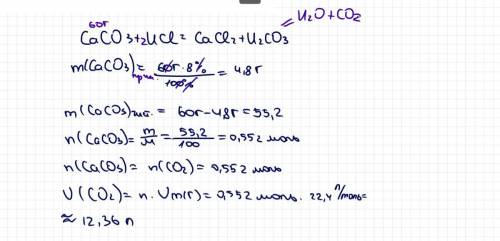 H₂O + CO₂
60г
CaCO3+2HCl = CaCl₂+H₂CO₃
m(CaCO₃)прим. = 60г · 8% / 100% = 4,8г
m(CaCO₃)чист. = 60г-4,8г = 55,2
n(CaCO₃) = m/M = 55,2/100 = 0,552 моль
n(CaCO₃) = n(CO₂) = 0,552 моль
V(CO₂) = n · Vm(г) = 0,552 моль · 22,4 л/моль =
≈ 12,36 л